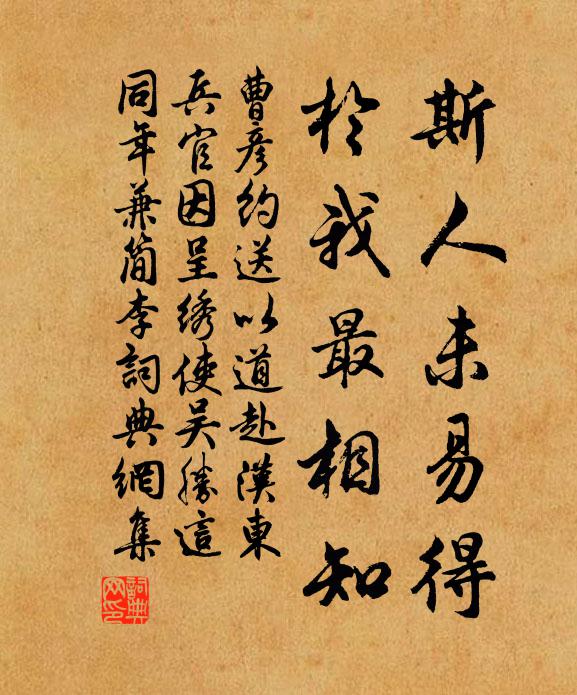 斯人未易得
於我最相知
曹彦約送以道赴漢東
兵官因呈綉使吴勝這
同年兼簡李詞典網集
詞典
网印